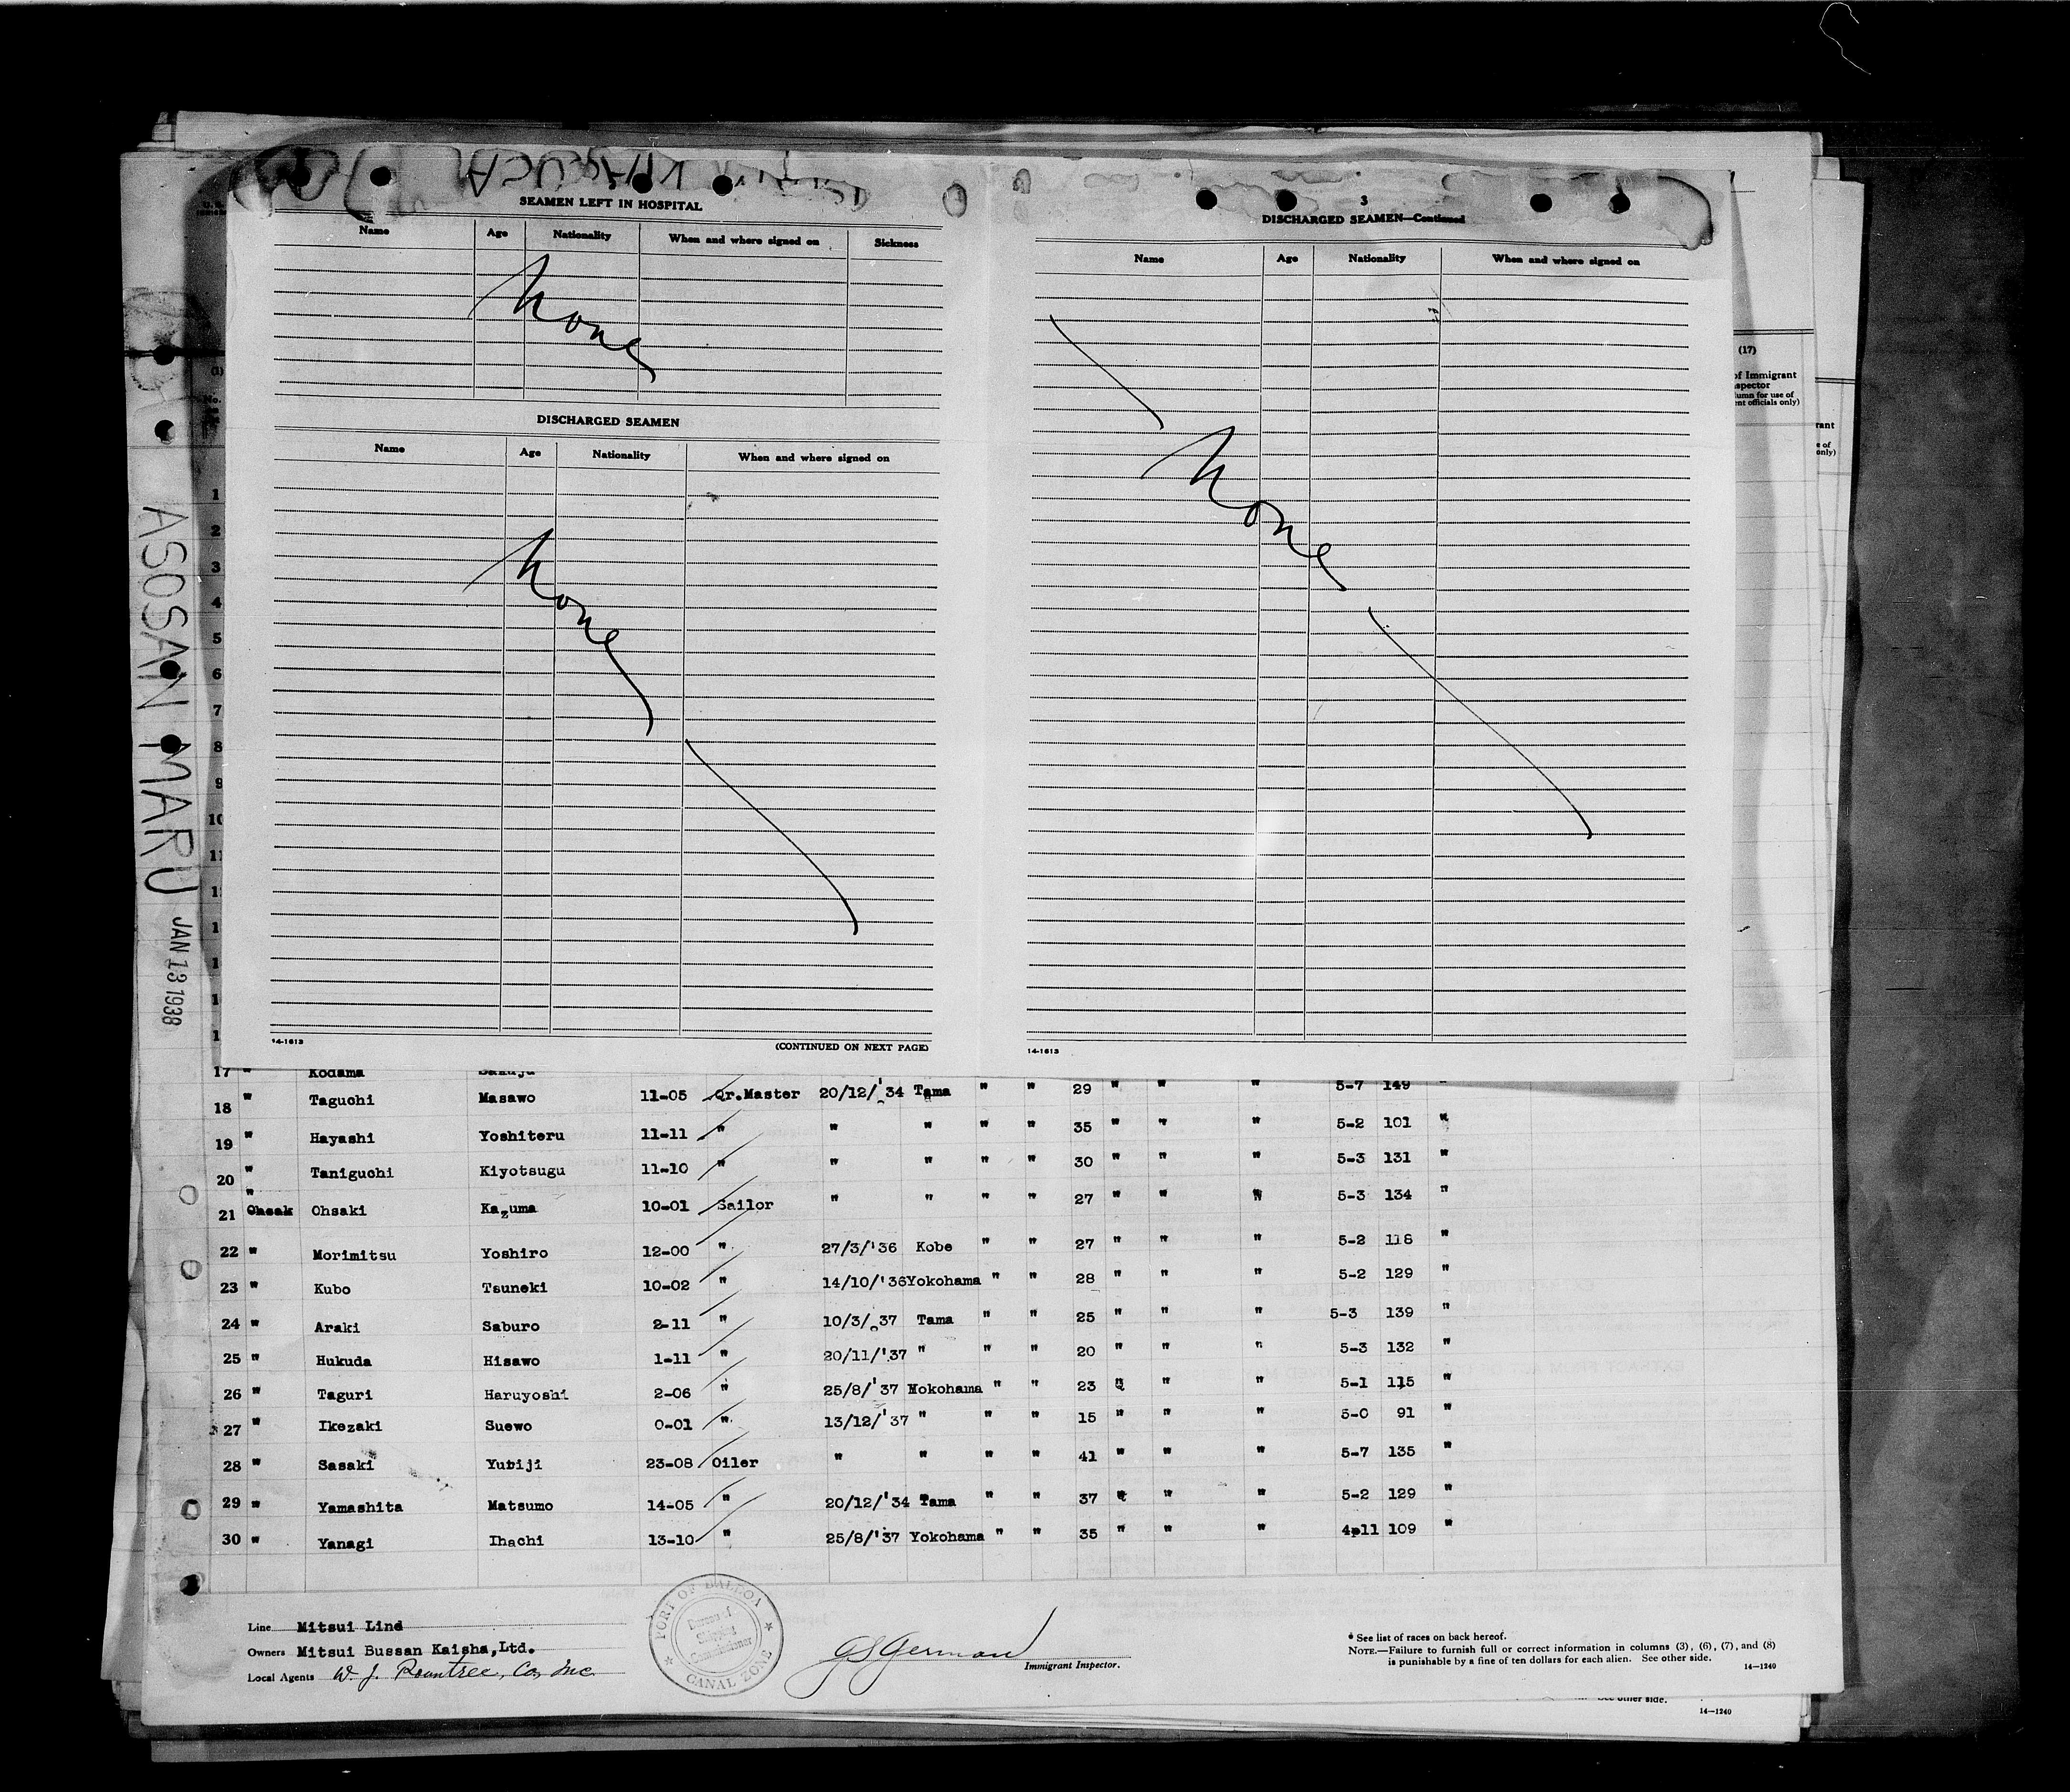 ASOSAN MARU
JAN 13 1938
SEAMEN LEFT IN HOSPITAL
Name Age Nationality When and where signed on Sickness
None
DISCHARGED SEAMEN
Name Age Nationality When and where signed on
None
14-1613
(CONTINUED ON NEXT PAGE)
3
DISCHARGED SEAMEN—Continued
Name Age Nationality When and where signed on
None
14-1613
(17)
of Immigrant
spector
lumn for use of
ent officials only)
(1)
No.
1
2
3
4
5
6
7
8
9
10
17 " Kodama 5-7 149 "
18 " Taguchi Masawo 11-05 Qr.Master 20/12/'34 Tama " " 29 " " "
19 " Hayashi Yoshiteru 11-11 " " " " " 35 " " " 5-2 101 "
20 " Taniguchi Kiyotsugu 11-10 " " " " " 30 " " " 5-3 131 "
21 " Ohsak Ohsaki Kazuma 10-01 Sailor " " " " 27 " " " 5-3 134 "
22 " Morimitsu Yoshiro 12-00 " 27/3/'36 Kobe " " 27 " " " 5-2 118 "
23 " Kubo Tsuneki 10-02 " 14/10/'36Yokohama " " 28 " " " 5-2 129 "
24 " Araki Saburo 2-11 " 10/3/ 37 Tama " " 25 " " " 5-3 139 "
25 " Hukuda Hisawo 1-11 " 20/11/'37 " " " 20 " " " 5-3 132 "
26 " Taguri Haruyoshi 2-06 " 25/8/'37 Hokohama " " 23 " " " 5-1 115 "
27 " Ikezaki Suewo 0-01 " 13/12/'37 " " " 15 " " " 5-0 91 "
28 " Sasaki Yubiji 23-08 Oiler " " " " 41 " " " 5-7 135 "
29 " Yamashita Matsumo 14-05 " 20/12/'34 Tama " " 37 " " " 5-2 129 "
30 " Yanagi Ihachi 13-10 " 25/8/'37 Yokohama " " 35 " " " 4-11 109 "
Line Mitsui Lind
Owners Mitsui Bussan Kaisha,Ltd.
Local Agents W. J. Rountree, Co, Inc
PORT OF BALBOA
Bureau of
Shipping
Commissioner
CANAL ZONE
GS German
Immigrant Inspector.
* See list of races on back hereof.
NOTE.—Failure to furnish full or correct information in columns (3), (6), (7), and (8)
is punishable by a fine of ten dollars for each alien. See other side.
14-1240
See other side.
14-1240